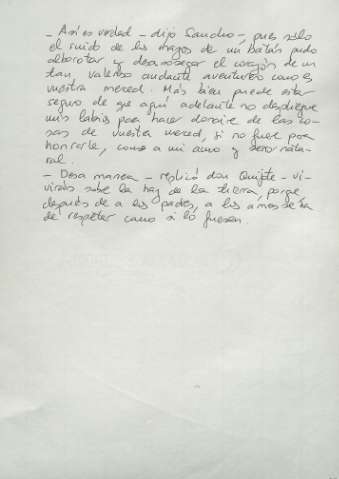 - Así es verdad - dijo Sancho -, pues solo
el ruido de los mazos de un batán pudo
alborotar y desasosegar el corazón de un
tan valeroso andante aventurero como es
vuestra merced. Más bien puede estar
seguro de que aquí adelante no despliegue
mis labios para hacer donaire de las co-
sas de vuestra merced, si no fuere para
honrarle, como a mi amo y señor natu-
ral.
- Desa manera - replicó don Quijote - vi-
virás sobre la haz de la tierra, porque
después de a los padres, a los amos se ha
de respetar como si lo fuesen.